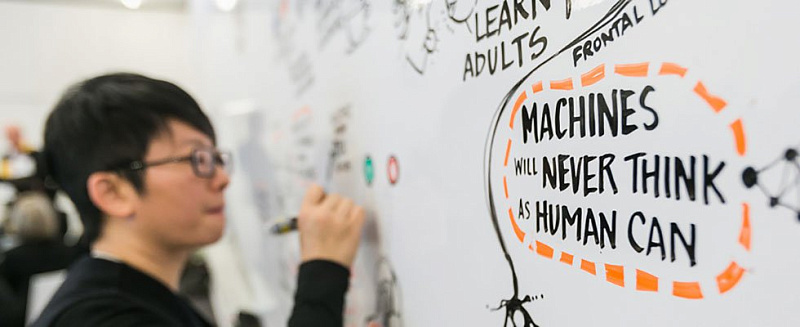 LEARN
ADULTS
FRONTAL
MACHINES
WILL NEVER THINK
AS HUMAN CAN